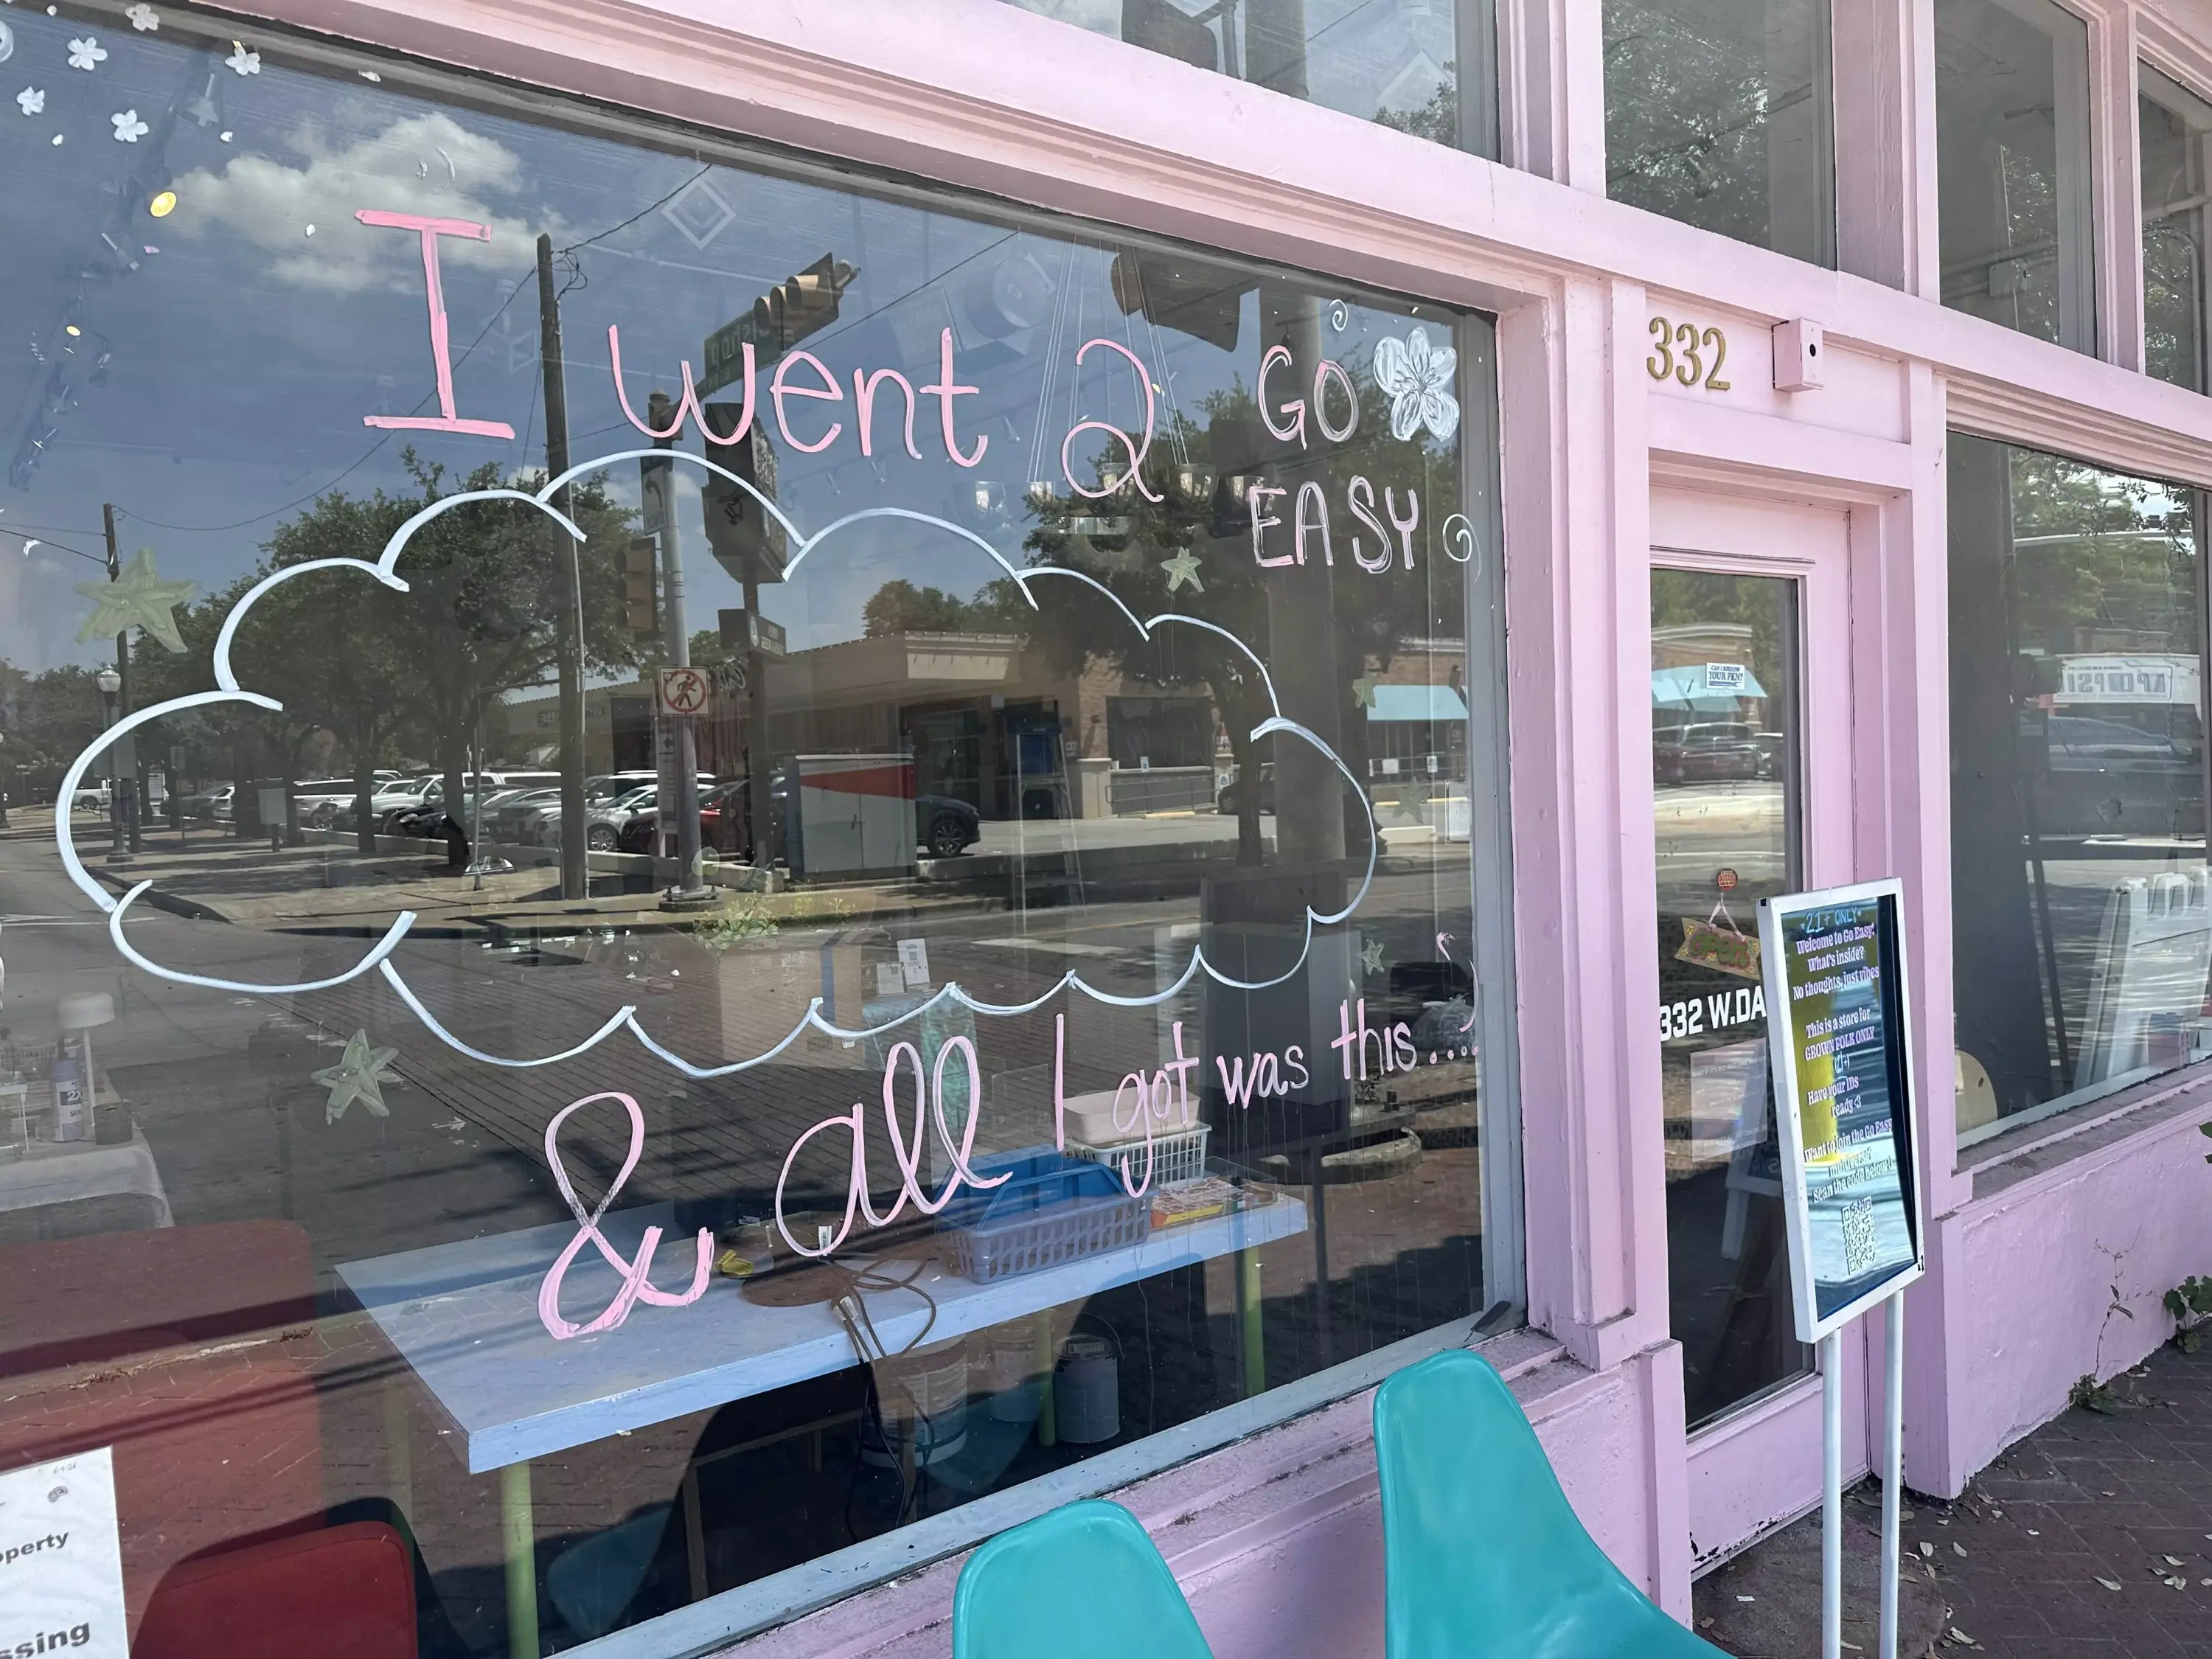 I went 2 GO
EASY
& all I got was this....
332
OPEN
332 W.DA
21+ ONLY
Welcome to Go Easy!
What's inside?
No thoughts, just vibes
This is a store for
GROWN FOLK ONLY
(21+)
Have your IDs
ready <3
Want to join the Go Easy
multiverse?
Scan the code below!
CAN I BORROW
YOUR PEN?
operty
ssing